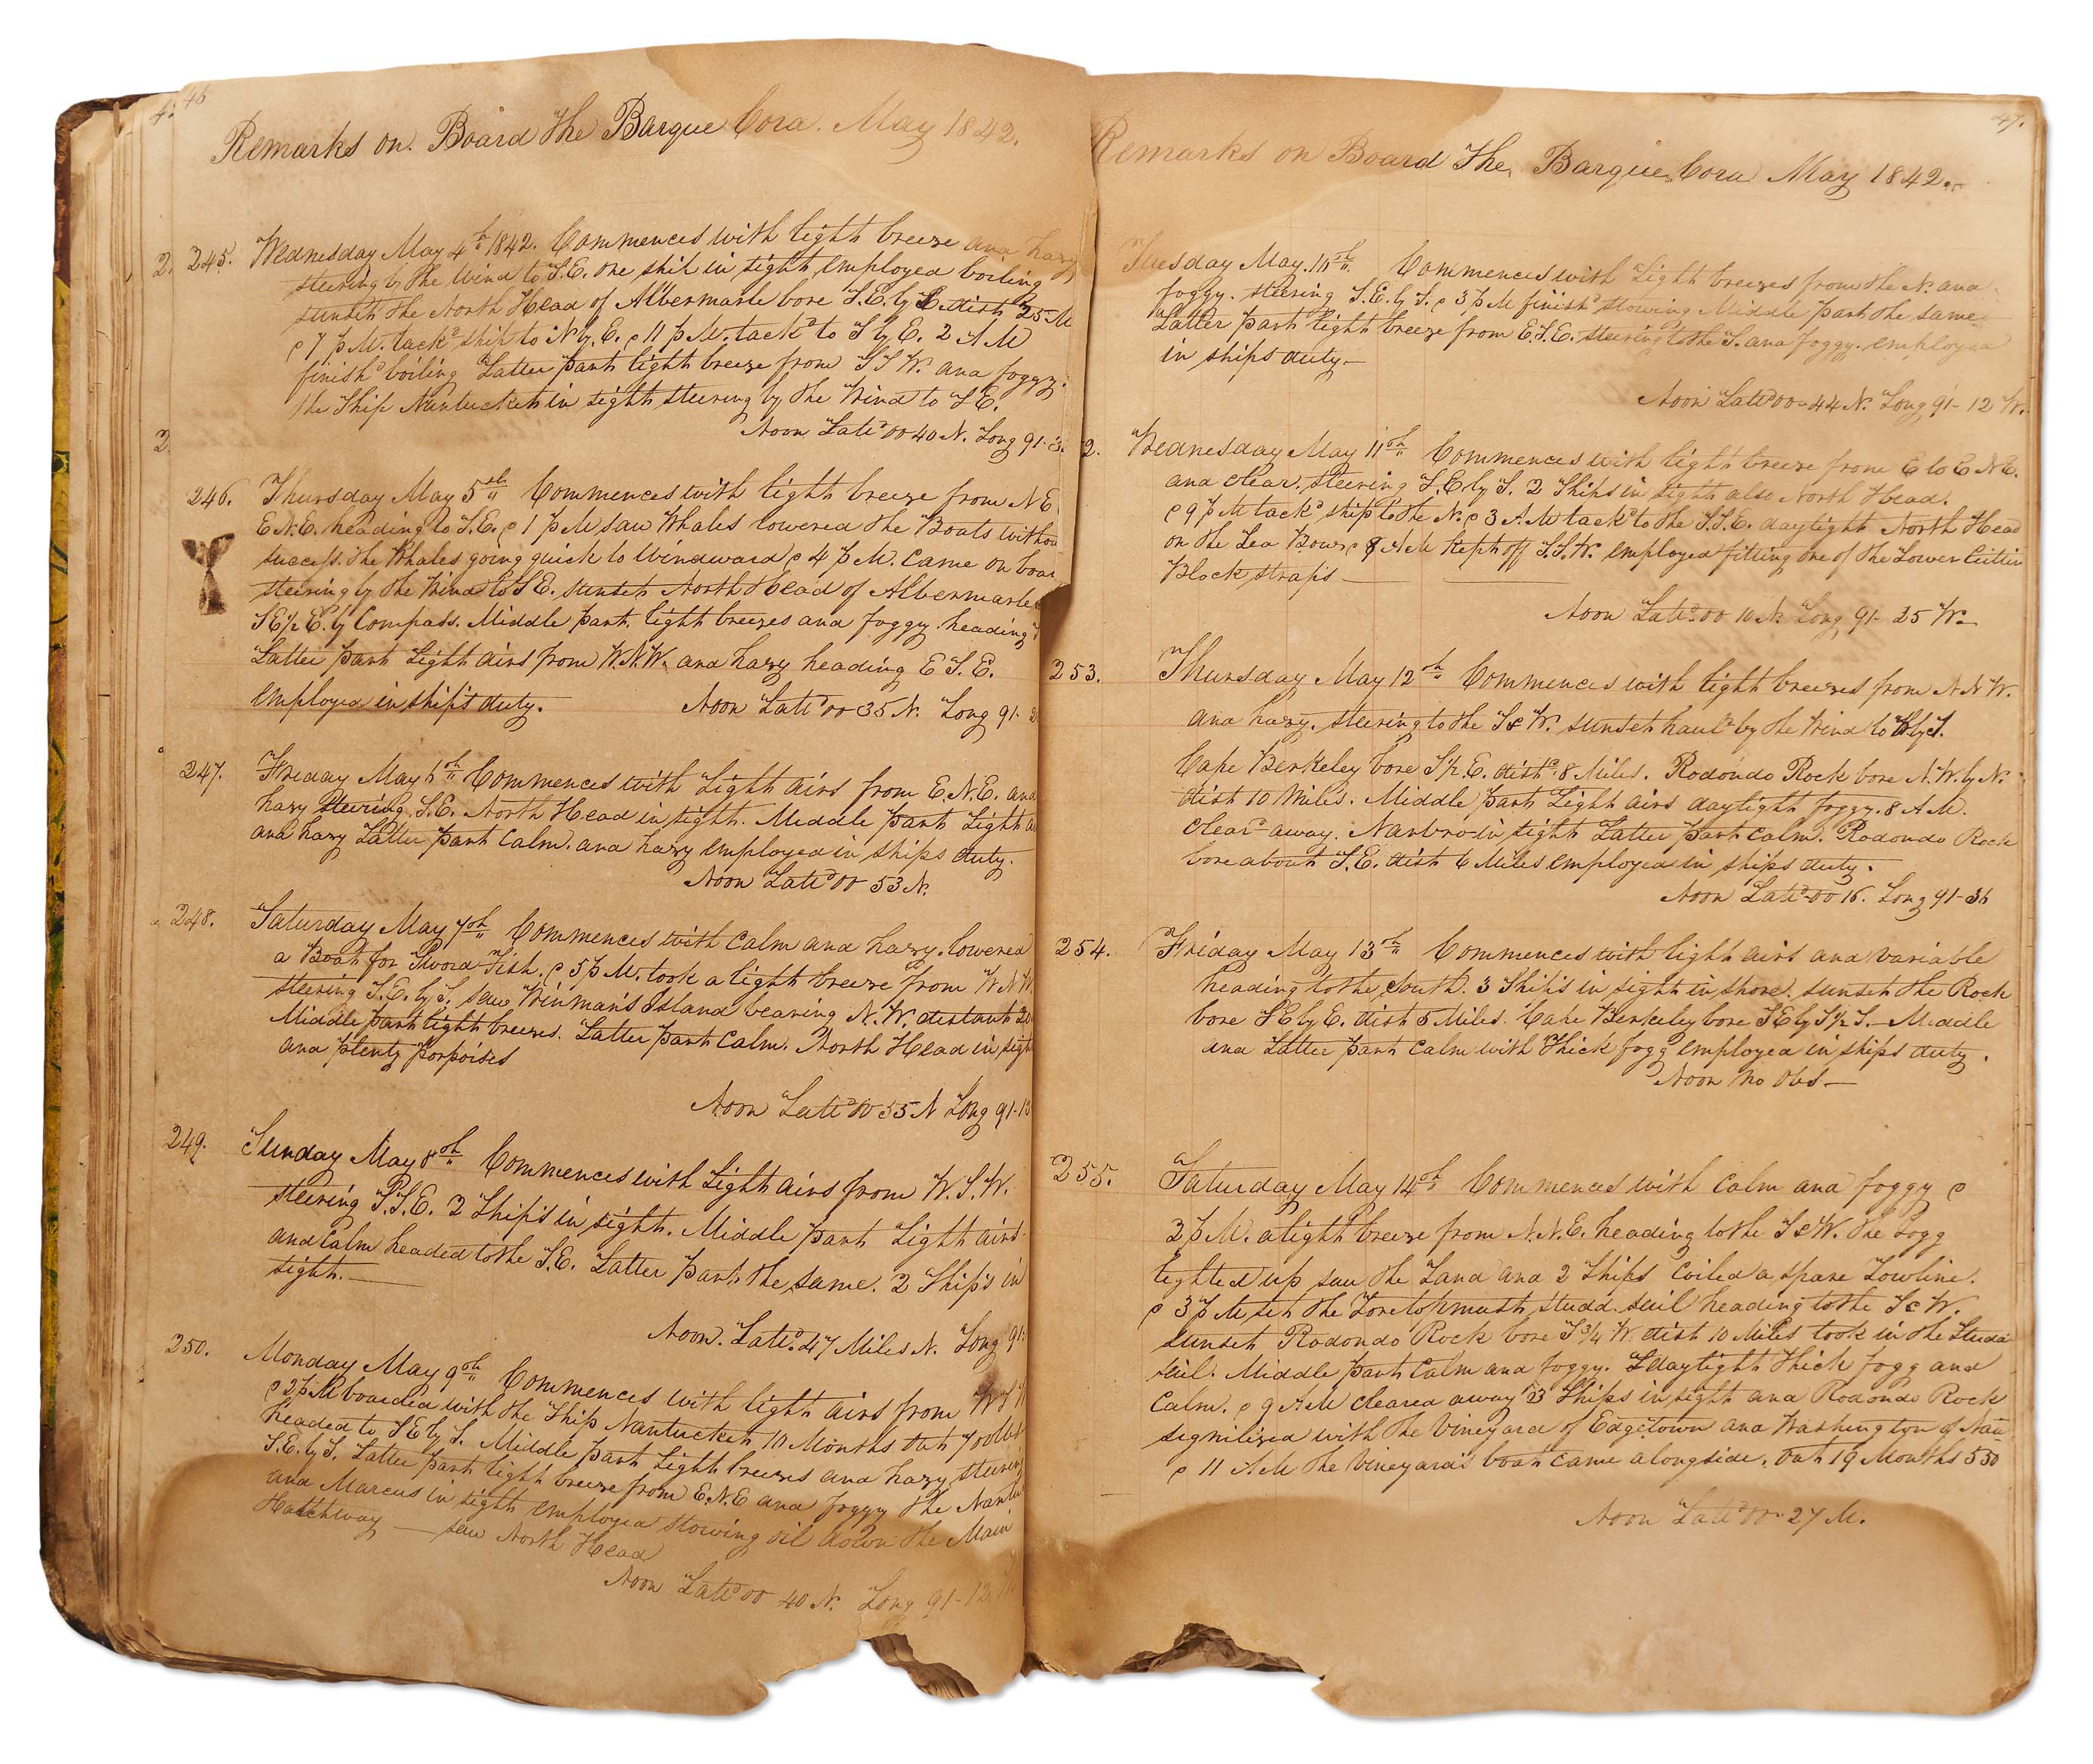 46
Remarks on Board The Barque Cora. May 1842.
245. Wednesday May 4th 1842. Commences with light breeze and hazy
steering by the Wind to S.E. one ship in sight employed boiling
sunset the North Head of Albermarle bore S.E. by E dist 25 M
@ 7 P.M. tackd ship to N by E. @ 11 P.M. tackd to S by E. 2 A M
finishd boiling Latter part light breeze from SSW. and foggy.
the Ship Nantucket in sight steering by the Wind to SE.
Noon Latd 00 40 N. Long 91-3
246. Thursday May 5th Commences with light breeze from NE
E.N.E. heading to S.E. @ 1 P M saw Whales lowered the Boats withou
success. the Whales going quick to Windward @ 4 P.M. came on boar
steering by the Wind to SE. sunset North Head of Albermarle
SE½E. by Compass. Middle part. light breezes and foggy heading
Latter part Light airs from W.N.W. and hazy heading E S.E.
employed in ship's duty. Noon Latd 00-35 N. Long 91-
247. Friday May 6th Commences with Light airs from E.N.E. and
hazy Steering S.E. North Head in sight. Middle part Light
and hazy Latter part Calm. and hazy employed in ships duty.
Noon Latd 00 53 N.
248. Saturday May 7th Commences with Calm and hazy. lowered
a Boat for Sword Fish. @ 5 P M. took a light breeze from W N W
steering S.E. by S. saw Winman's Island bearing N.W. distant 20
Middle part light breezes. Latter part Calm. North Head in sight
and plenty porpoises
Noon Latd 00 55 N Long 91-1
249. Sunday May 8th Commences with Light airs from W.S.W.
steering S.S.E. 2 Ship's in sight. Middle part Light airs
and Calm headed to the S.E. Latter part the same. 2 Ship's in
sight.
Noon. Latd. 47 Miles N. Long 91
250. Monday May 9th Commences with light airs from WS
@ 2 P M boarded with the Ship Nantucket 10 Months out 700
headed to SE by S. Middle part Light breezes and hazy steering
S.E. by S. Latter part light breeze from E.N.E and foggy the Nantu
and Marcus in sight employed stowing oil down the Main
Hatchway — saw North Head
Noon Latd 00 40 N. Long 91-12
47.
Remarks on Board The Barque Cora May 1842.
Tuesday May 10th Commences with Light breezes from the N. and
foggy. steering S.E. by S. @ 3 P M finishd stowing Middle part the same
Latter part light breeze from E.S.E. steering to the S. and foggy. employed
in ships duty.—
Noon Latd 00-44 N. Long 91-12 W.
2. Wednesday May 11th Commences with light breeze from E to E N E.
and clear. steering S.E. by S. 2 Ships in sight also North Head.
@ 9 P M tackd ship to the N. @ 3 A.M tackd to the S.S.E. daylight North Head
on the Lea Bow @ 8 A M kept off S.S.W. employed fitting one of the Lower Cuttin
Block straps —
Noon Latd 00 10 N Long 91-25 W
253. Thursday May 12th Commences with light breezes from N N W.
and hazy. steering to the S & W. sunset hauld by the Wind to W by S.
Cape Berkeley bore S½E. distt 8 Miles. Rodondo Rock bore N.W. by N.
dist 10 Miles. Middle part Light airs daylight foggy. 8 A M.
cleard away. Narbro in sight Latter part calm. Rodondo Rock
bore about S.E. dist 6 Miles employed in ships duty.
Noon Latd 00 16. Long 91-36
254. Friday May 13th Commences with light airs and variable
heading to the South. 3 Ship's in sight in shore. sunset the Rock
bore SE by E. dist 5 Miles. Cape Berkeley bore SE by S½S. — Middle
and Latter part Calm with thick fogg employed in ships duty.
Noon no obs—
255. Saturday May 14th Commences with calm and foggy @
2 P M. a light breeze from N.N.E. heading to the S & W. the Fogg
lighted up saw the Land and 2 Ships Coiled a spare Towline.
@ 3 P M set the Foretopmast studd. sail heading to the S & W.
sunset Rodondo Rock bore S¾W. dist 10 Miles took in the Studd
sail. Middle part Calm and foggy. daylight thick fogg and
Calm. @ 9 A M cleared away 3 Ships in sight and Rodondo Rock
signilized with the Vineyard of Edgetown and Washington of Nan
@ 11 A M the Vineyard's boat came alongside. out 19 Months 550
Noon Latd 00-27 M.